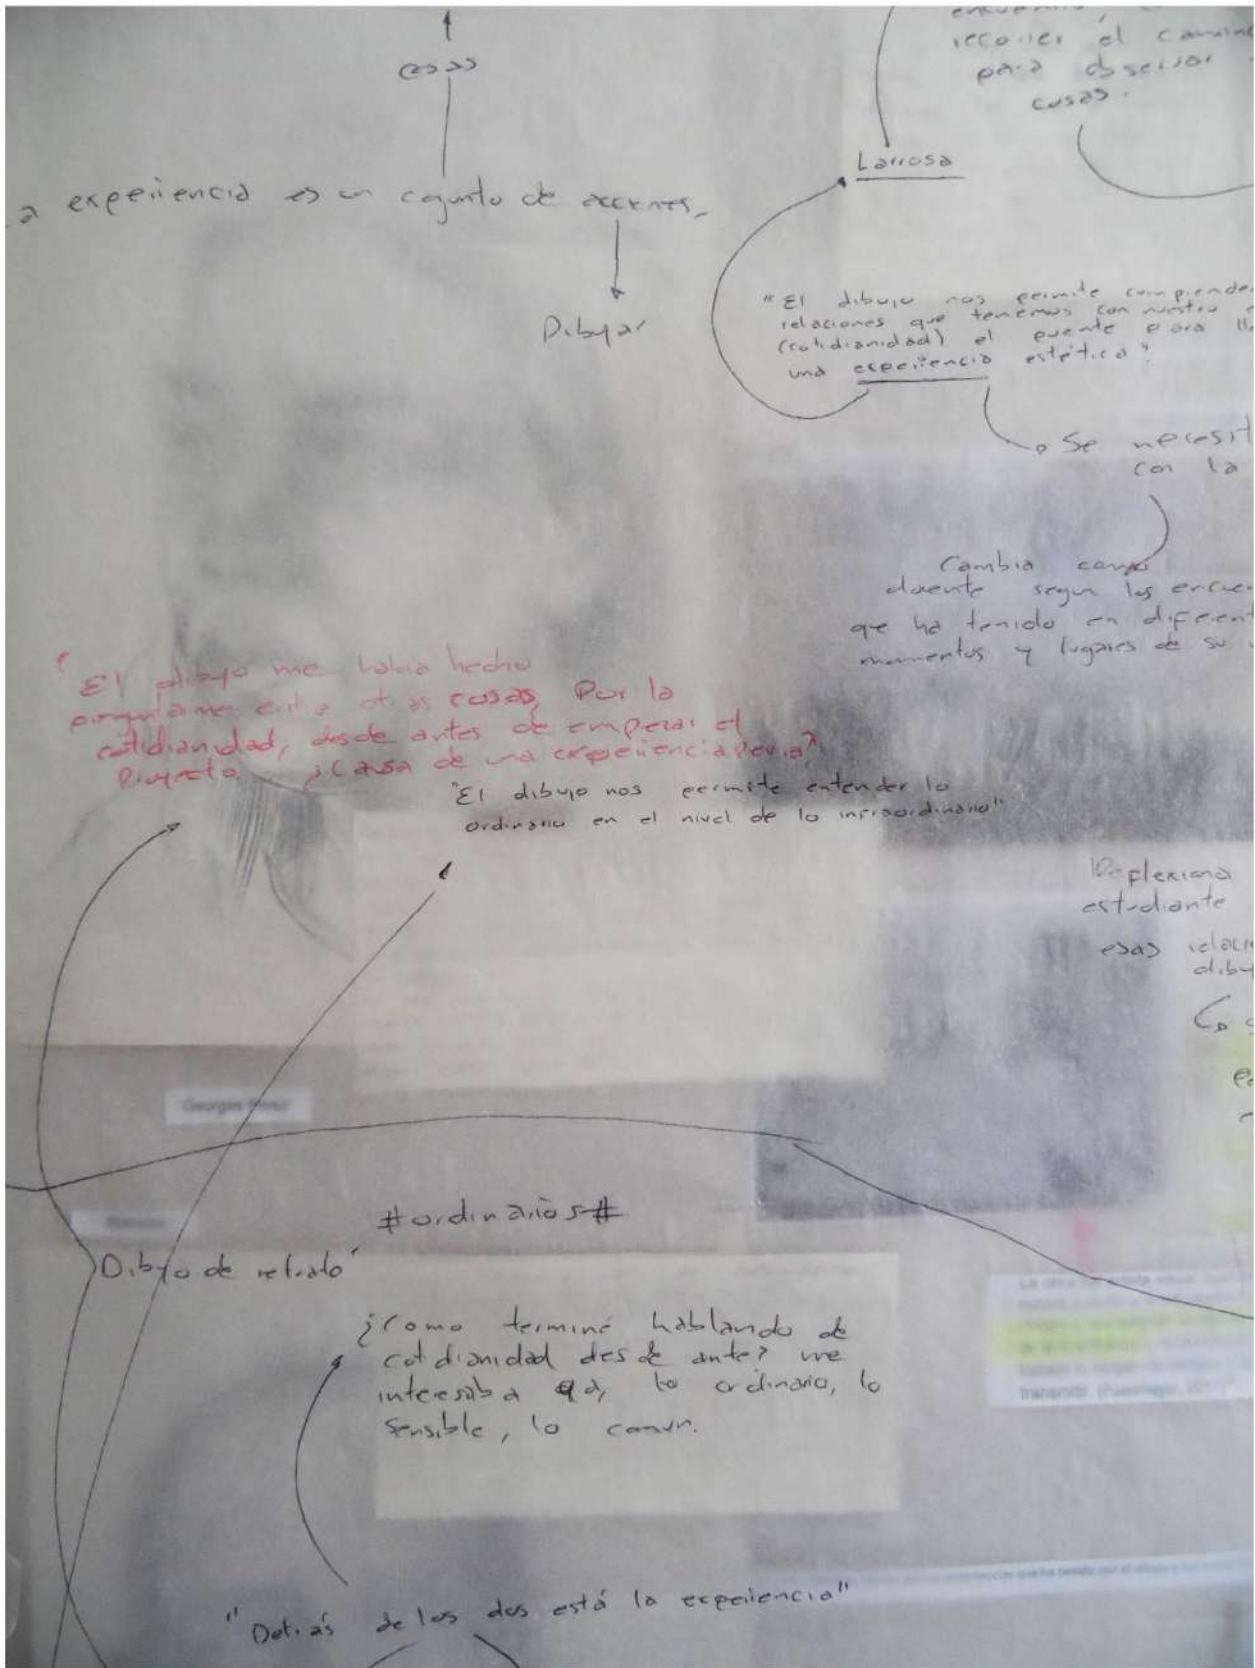 recorrer el camino
para observar
cosas.
esas
Larrosa
a experiencia es un cojunto de acciones,
Dibujar
"El dibujo nos permite comprender
relaciones que tenemos con nuestro
(cotidianidad) el puente para
una experiencia estética"
Se necesit
con la
Cambia como
docente segun los encue
que ha tenido en diferent
momentos y lugares de su
"El dibujo me habia hecho
preguntarme entre otras cosas, Por la
cotidianidad, desde antes de empezar el
Proyecto. ¿Causa de una experiencia previa?
"El dibujo nos permite entender lo
ordinario en el nivel de lo infraordinario"
Reflexiona
estudiante
esas relacio
dibu
Georges Perec
#ordinarios#
Dibujo de retrato
¿Como terminé hablando de
cotidianidad desde antes me
interesaba lo ordinario, lo
sensible, lo comun.
transmitir.
"Detrás de los dos está la experiencia"